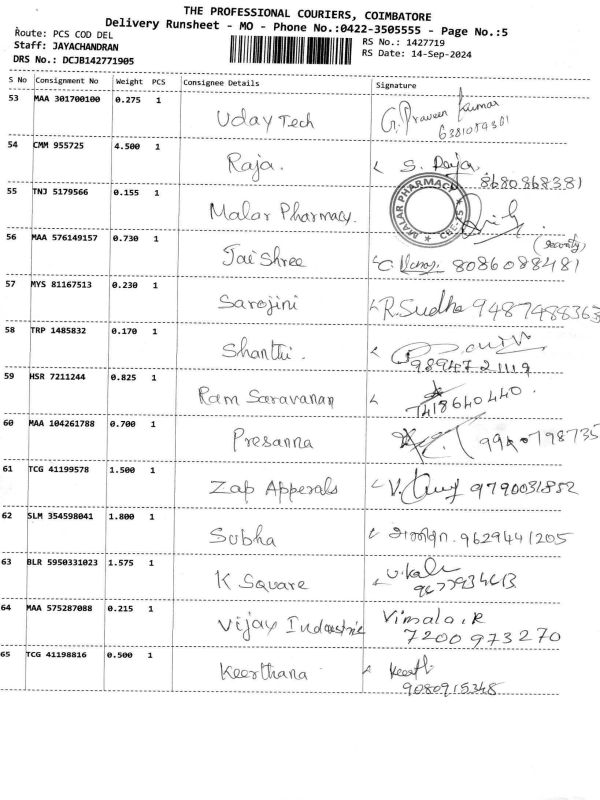 THE PROFESSIONAL COURIERS, COIMBATORE
Delivery Runsheet - MO - Phone No.:0422-3505555 - Page No.:5
Route: PCS COD DEL
Staff: JAYACHANDRAN
DRS No.: DCJB142771905
RS No.: 1427719
RS Date: 14-Sep-2024
S No Consignment No Weight PCS Consignee Details Signature
53 MAA 301700100 0.275 1 Uday Tech G. Praveen Kumar
6381089301
54 CMM 955725 4.500 1 Raja. S. Raja
8680868381
55 TNJ 5179566 0.155 1 Malar Pharmacy.
MALAR PHARMACY
CBE-15
56 MAA 576149157 0.730 1 Jai Shree (security)
8086088481
57 MYS 81167513 0.230 1 Sarojini R. Sudha 9487488363
58 TRP 1485832 0.170 1 Shanthi.
9894721119
59 HSR 7211244 0.825 1 Ram Saravanan
7418640440.
60 MAA 104261788 0.700 1 Presanna
61 TCG 41199578 1.500 1 Zap Apperals V. 9790031852
62 SLM 354598041 1.800 1 Subha 9629441205
63 BLR 5950331023 1.575 1 K Square V. Kala
64 MAA 575287088 0.215 1 Vijay Industrie Vimala.R
7200973270
65 TCG 41198816 0.500 1 Keerthana
9080915348